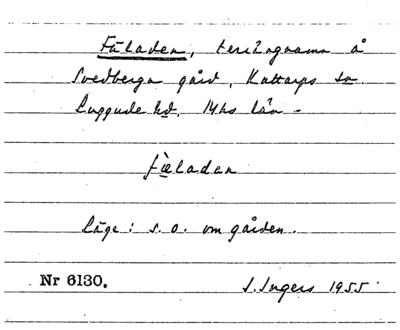 Fäladen, terrängnamn å
Svedberga gård, Kattarps sn.
Luggude hd. Mhs län -
fæ̀ladan
Läge: s. o. om gården.
Nr 6130.
I. Ingers 1955